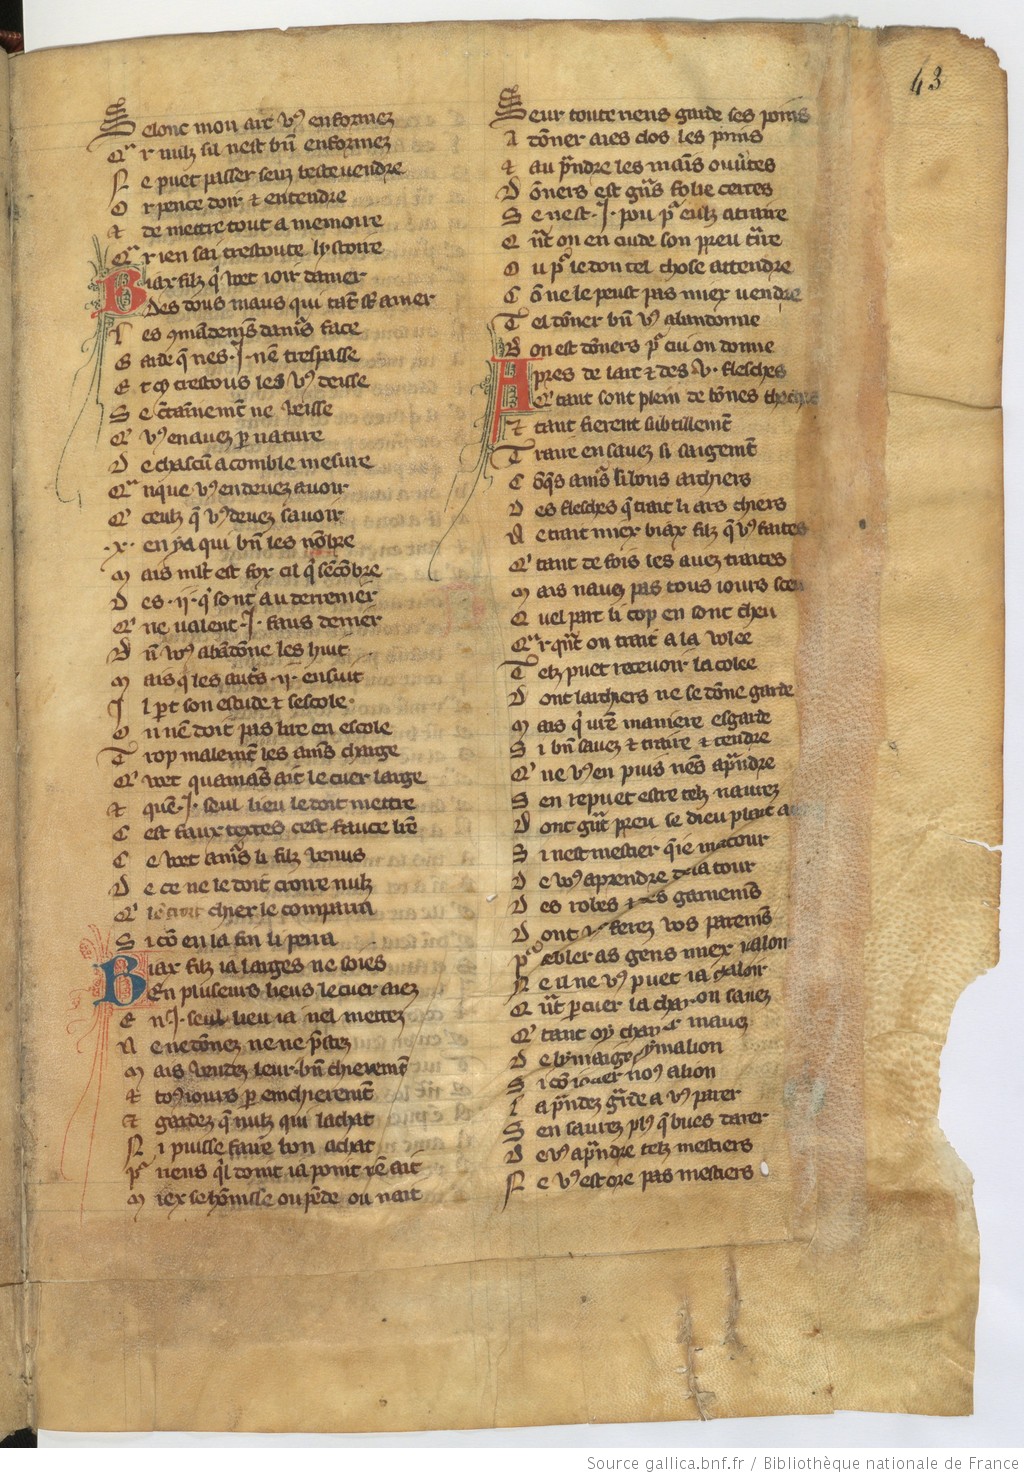 43
Selonc mon art v⁹ enformez
Car nulz sil nest bn̄ enformez
Ne puet passer senz teste vendre
Or pence doir ⁊ entendre
Et de mettre tout a memoire
Car ien sai trestoute lystoire
Biax filz q̄ vuet ioir damer
Des dous maus qui tāt sūt amer
Les ꝯmādemēs damr̄s face
Garde q̄ nes .J. nē trespasse
Et trestous les v⁹ deisse
Se certānemēt ne veisse
Que v⁹ en avez ꝑ nature
De chascū a comble mesure
Car nique v⁹ en devez avoir
Car ceulz q̄ v⁹ devez savoir
.x. en ya qui bn̄ les nōbre
Mais mlt̄ est fox cil q̄ sēcōbre
Des .ij. q̄ sont au derrenier
Qui ne valent .J. faus denier
Bn̄ v⁹ abādōne les huit
Mais q̄ les autr̄s .ij. ensuit
Il pert son estude ⁊ sescole
On nē doit pas lire en escole
Trop malemēt les amās charge
Qui vuet quamās ait le cuer large
Et quē .J. seul lieu le doit mettre
Cest faux textes cest fauce lr̄e
Ce vuet amr̄s li filz venus
De ce ne le doit croire nulz
chier le comparra
Si cō en la fin li perra
Biax filz ia larges ne soies
En pluseurs lieus le cuer aiez
En .J. seul lieu ia nel mettez
Ne ne dōnez ne ne pr̄stez
Mais vendez leur bn̄ chieremēt
Et toꝰ iours ꝑ encheriemēt
Et gardez q̄ nulz qui lachat
Ni puisse faire bon achat
Pr̄ riens q̄l doint ia point nē ait
Miex se hōnisse ou pēde ou nait
Seur toute riens garde ses poins
A dōner aies clos les poins
Et au pr̄ndre les mains ouūtes
Dōners est grn̄s folie certes
Se nest .J. pou pr̄ eulz atraire
Qr̄nt on en cuide son preu t̄ire
Ou pr̄ le don tel chose attendre
Cō ne le peust pas miex vendre
Tel dōner bn̄ v⁹ abandonne
Bon est dōners pr̄ cui on donne
Apres de lart ⁊ des .v. flesches
Qui tant sont plein de bōnes
Et tant fierent subtillemēt
Traire en savez si saigemēt
Conq̄s amr̄s li bons archiers
Des flesches q̄ trait li ars chiers
Ne trait miex biax filz q̄ v⁹ faites
Qui tant de fois les avez traites
Mais navez pas tous iours
Quel part li cop en sont cheu
Car qn̄t on trait a la volee
Telz puet recevoir la colee
Dont larchers ne se dōne garde
Mais q̄ vr̄e maniere esgarde
Si bn̄ savez ⁊ traire ⁊ tendre
Que ne v⁹ en puis riēs apr̄ndre
Sen repuet estre telz navrez
Dont grn̄t preu se dieu plaist
Si nest mestier q̄ ie matour
De v⁹ aprendre de la tour
Des robes ⁊ des garnemēs
Dont ferez vos paremēs
Pr̄ sembler as gens miex valoir
Ne il ne v⁹ puet ia chaloir
Qn̄t ꝑ cuer la chancon savez
Qui tant oy chanter mavez
De lymaige pymalion
Si cō ioer no⁹ alion
La pr̄ndez garde a v⁹ parer
Sen saurez pl⁹ q̄ bues darer
De v⁹ apr̄ndre telz mestiers
Ne v⁹ est ore pas mestiers
Source gallica.bnf.fr / Bibliothèque nationale de France